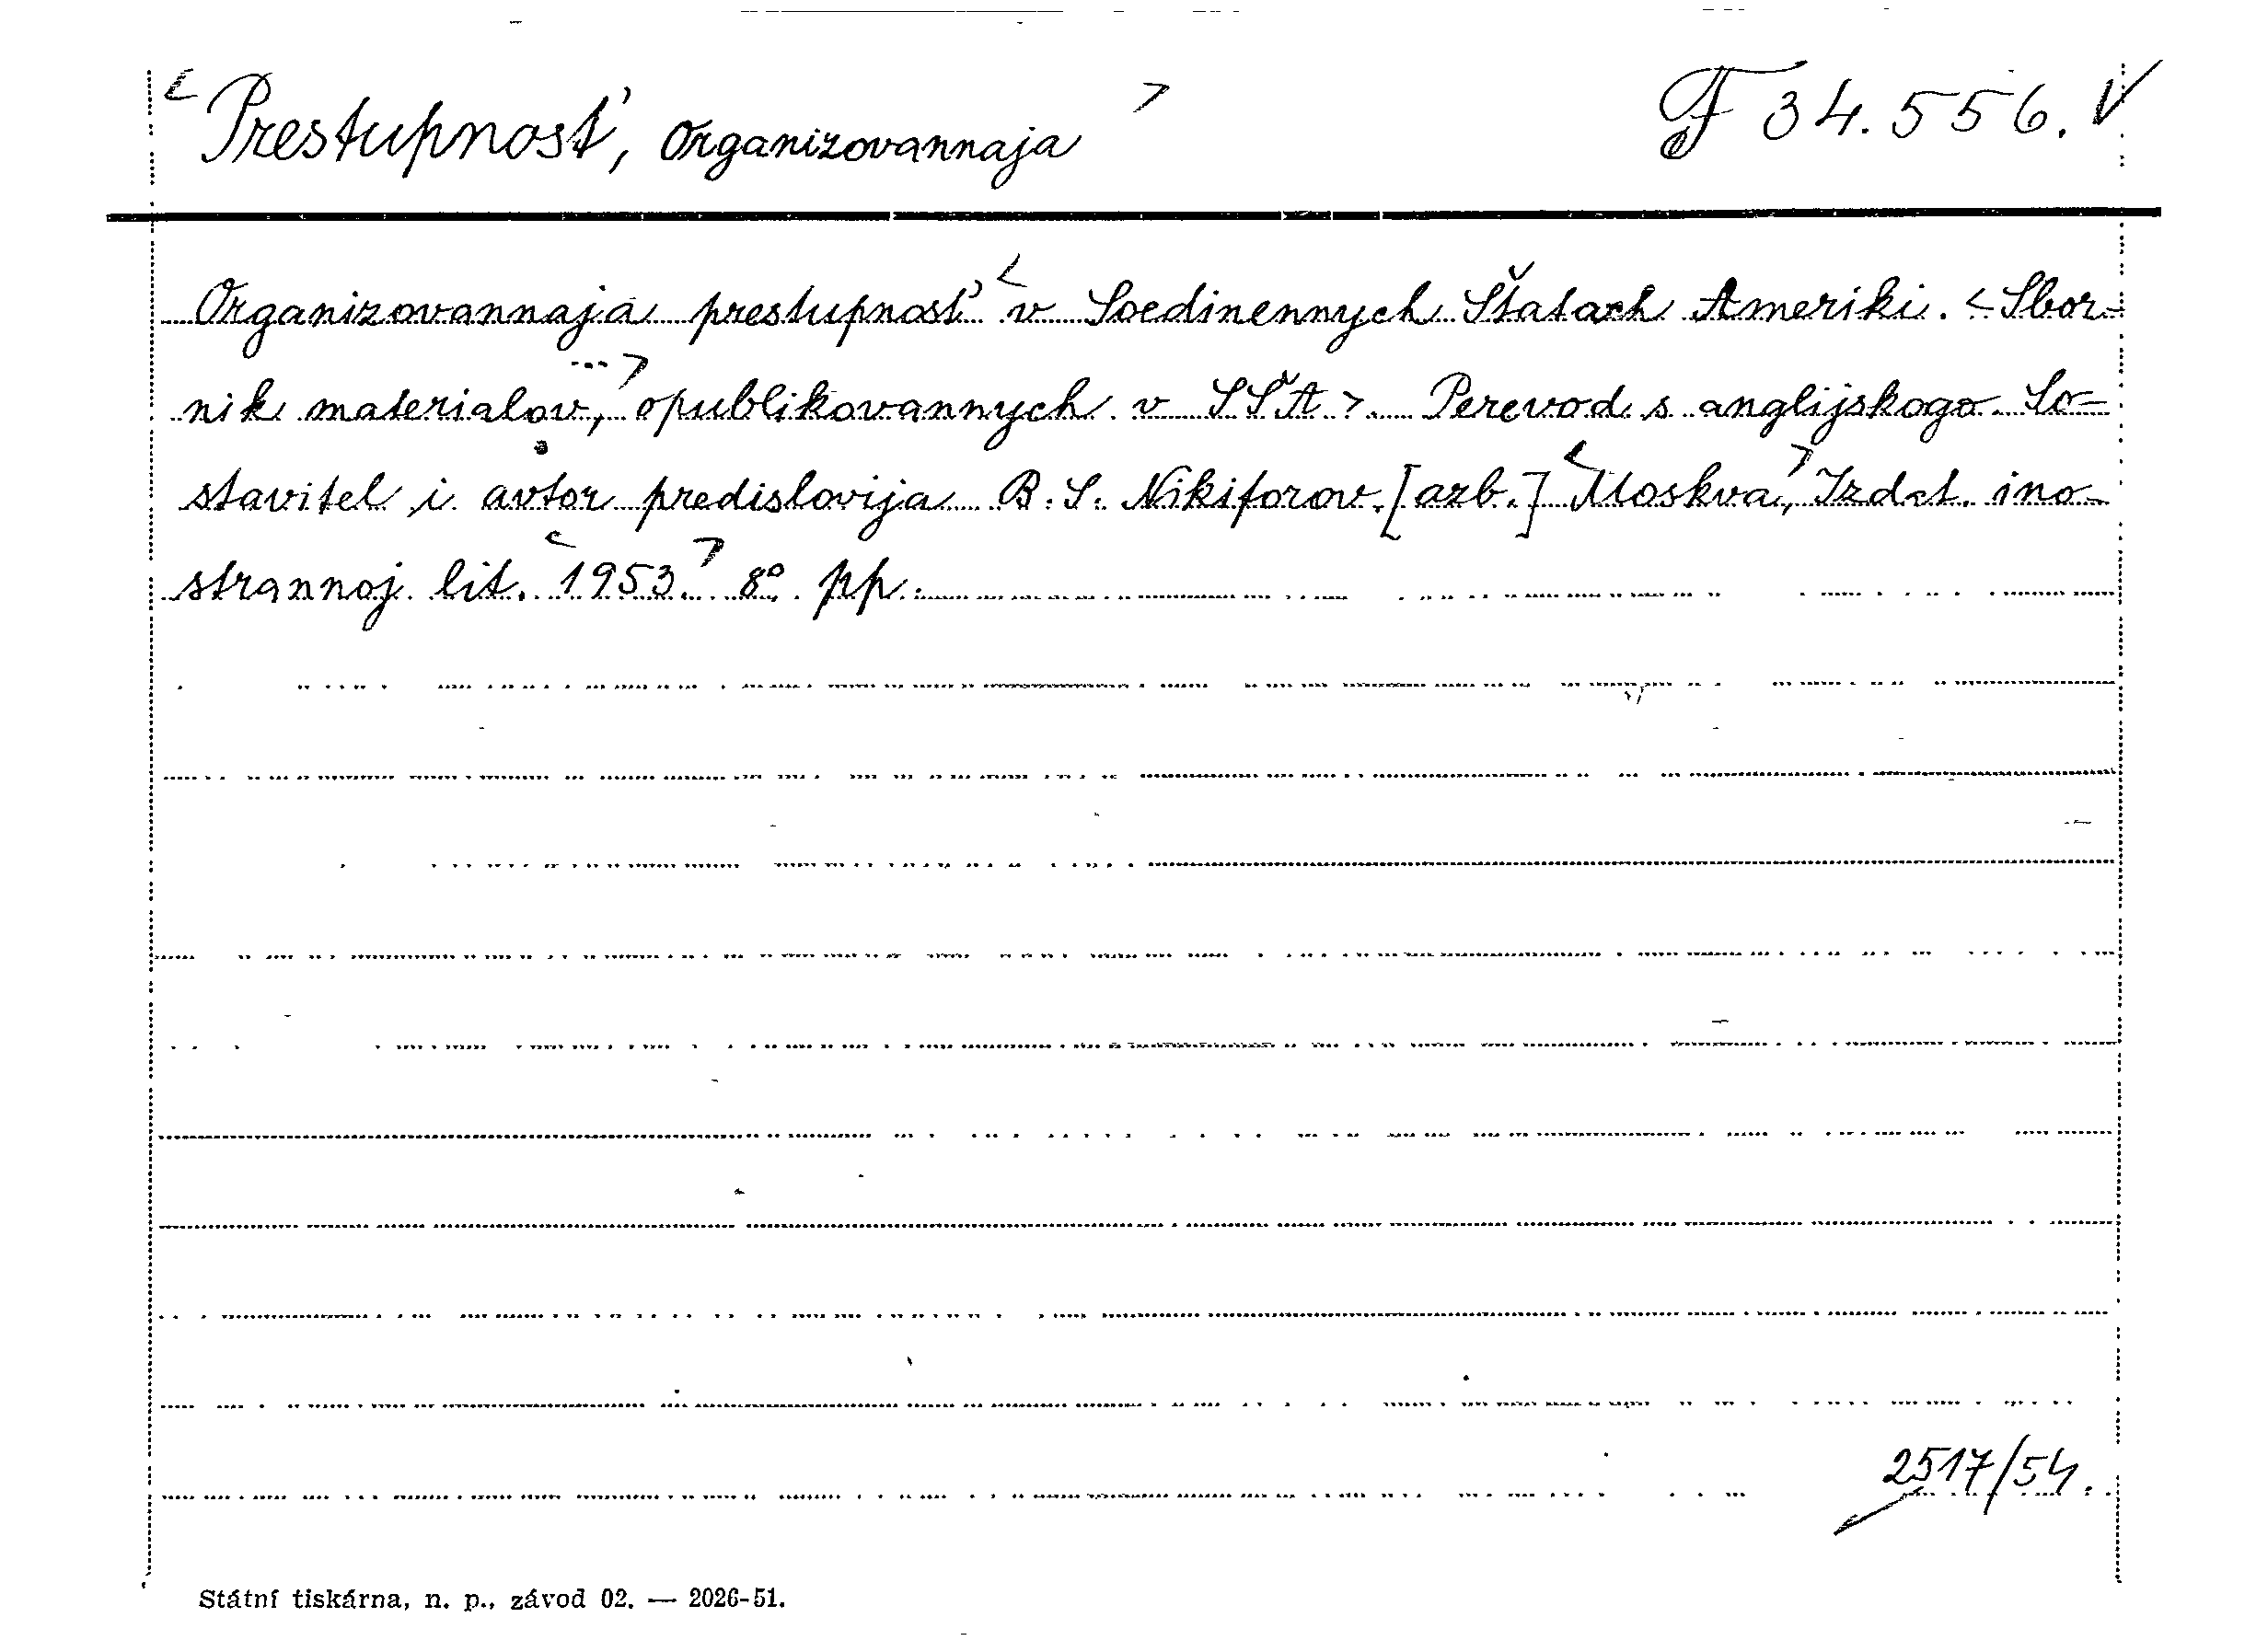 < Prestupnosť, organizovannaja > F 34.556. V
Organizovannaja prestupnosť < v Soedinennych Štatach Ameriki. < Sbor-
nik materialov, ... > opublikovannych v SŠA >. Perevod s anglijskogo. So-
stavitel i avtor predislovija B. S. Nikiforov. [azb.] < Moskva, > Izd-t. ino-
strannoj lit. < 1953. > 8° pp.
2517/54.
Státní tiskárna, n. p., závod 02. — 2026-51.